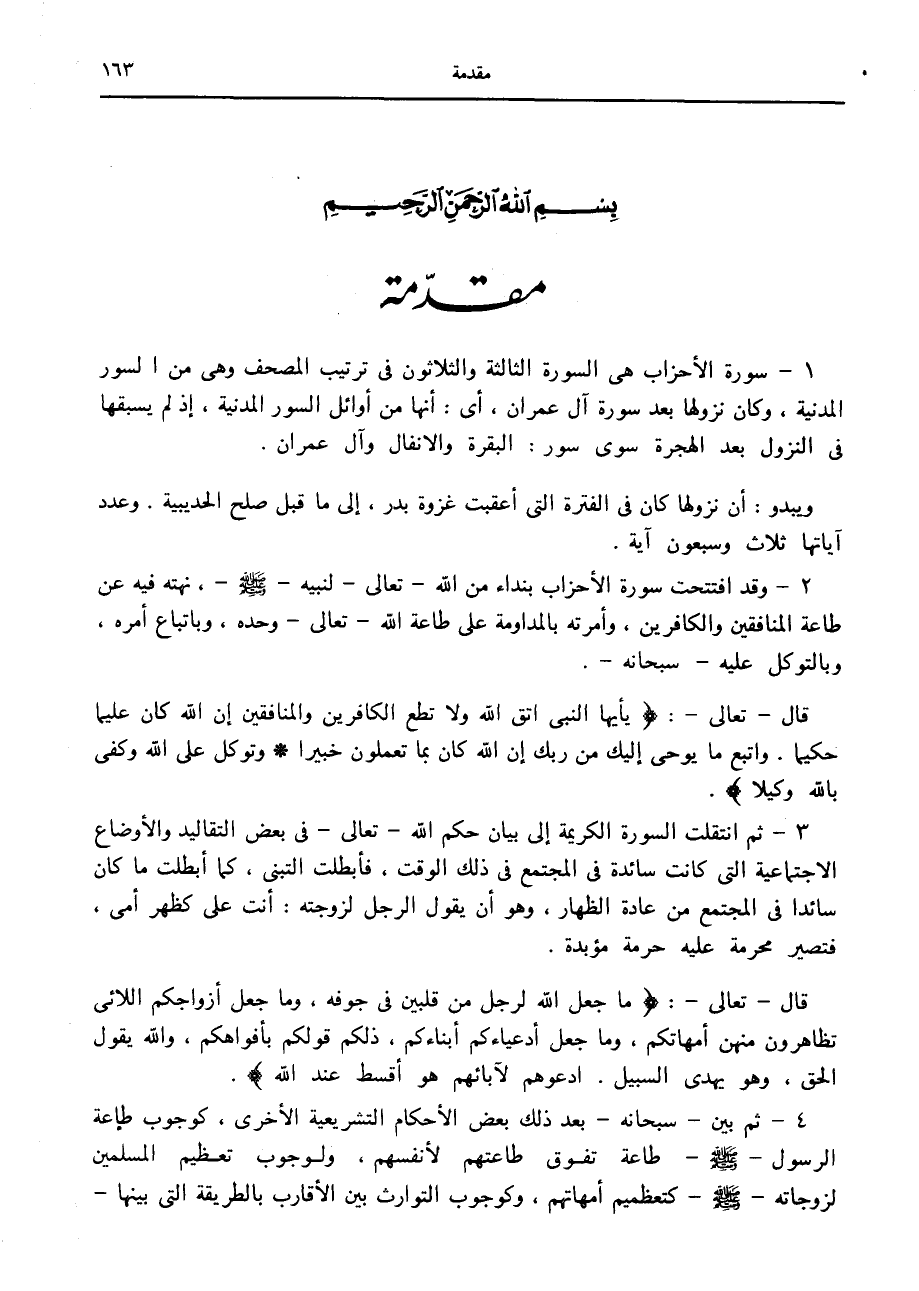 مقدمة ١٦٣
بسم الله الرحمن الرحيم
مقدّمة
١ - سورة الأحزاب هى السورة الثالثة والثلاثون فى ترتيب المصحف وهى من ا لسور
المدنية ، وكان نزولها بعد سورة آل عمران ، أى : أنها من أوائل السور المدنية ، إذ لم يسبقها
فى النزول بعد الهجرة سوى سور : البقرة والانفال وآل عمران .
ويبدو : أن نزولها كان فى الفترة التى أعقبت غزوة بدر ، إلى ما قبل صلح الحديبية . وعدد
آياتها ثلاث وسبعون آية .
٢ - وقد افتتحت سورة الأحزاب بنداء من الله - تعالى - لنبيه - ﷺ - ، نهته فيه عن
طاعة المنافقين والكافرين ، وأمرته بالمداومة على طاعة الله - تعالى - وحده ، وباتباع أمره ،
وبالتوكل عليه - سبحانه - .
قال - تعالى - : ﴿ يأيها النبى اتق الله ولا تطع الكافرين والمنافقين إن الله كان عليما
حكيما . واتبع ما يوحى إليك من ربك إن الله كان بما تعملون خبيرا * وتوكل على الله وكفى
بالله وكيلا ﴾ .
٣ - ثم انتقلت السورة الكريمة إلى بيان حكم الله - تعالى - فى بعض التقاليد والأوضاع
الاجتماعية التى كانت سائدة فى المجتمع فى ذلك الوقت ، فأبطلت التبنى ، كما أبطلت ما كان
سائدا فى المجتمع من عادة الظهار ، وهو أن يقول الرجل لزوجته : أنت على كظهر أمى ،
فتصير محرمة عليه حرمة مؤبدة .
قال - تعالى - : ﴿ ما جعل الله لرجل من قلبين فى جوفه ، وما جعل أزواجكم اللائى
تظاهرون منهن أمهاتكم ، وما جعل أدعياءكم أبناءكم ، ذلكم قولكم بأفواهكم ، والله يقول
الحق ، وهو يهدى السبيل . ادعوهم لآبائهم هو أقسط عند الله ﴾ .
٤ - ثم بين - سبحانه - بعد ذلك بعض الأحكام التشريعية الأخرى ، كوجوب طاعة
الرسول - ﷺ - طاعة تفوق طاعتهم لأنفسهم ، ولوجوب تعظيم المسلمين
لزوجاته - ﷺ - كتعظميم أمهاتهم ، وكوجوب التوارث بين الأقارب بالطريقة التى بينها -